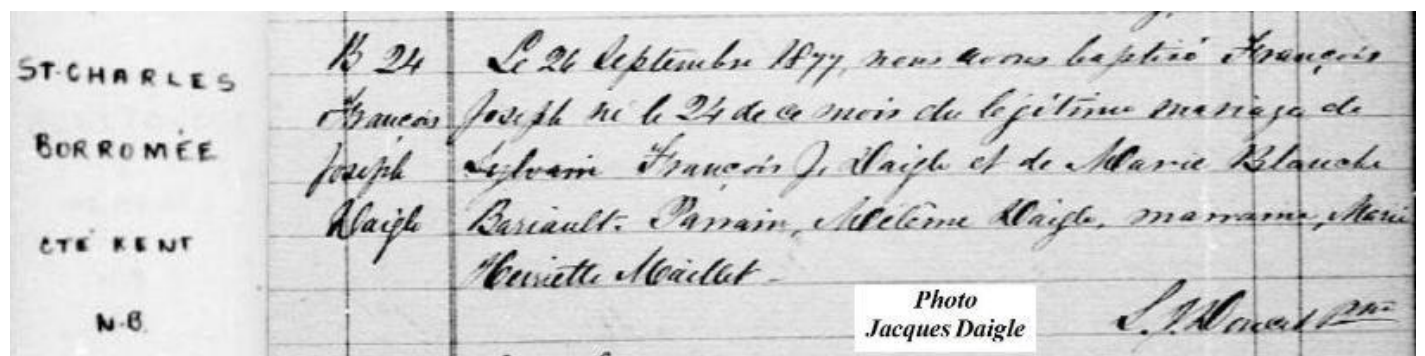 ST-CHARLES
BORROMÉE
CTÉ KENT
N.B.
B 24
François
Joseph
Daigle
Le 26 Septembre 1877, nous avons baptisé François
Joseph né le 24 de ce mois du légitime mariage de
Sylvain François J. Daigle et de Marie Blanche
Bariault. Parrain, Mélème Daigle, marraine, Marie
Henriette Maillet
Photo
Jacques Daigle